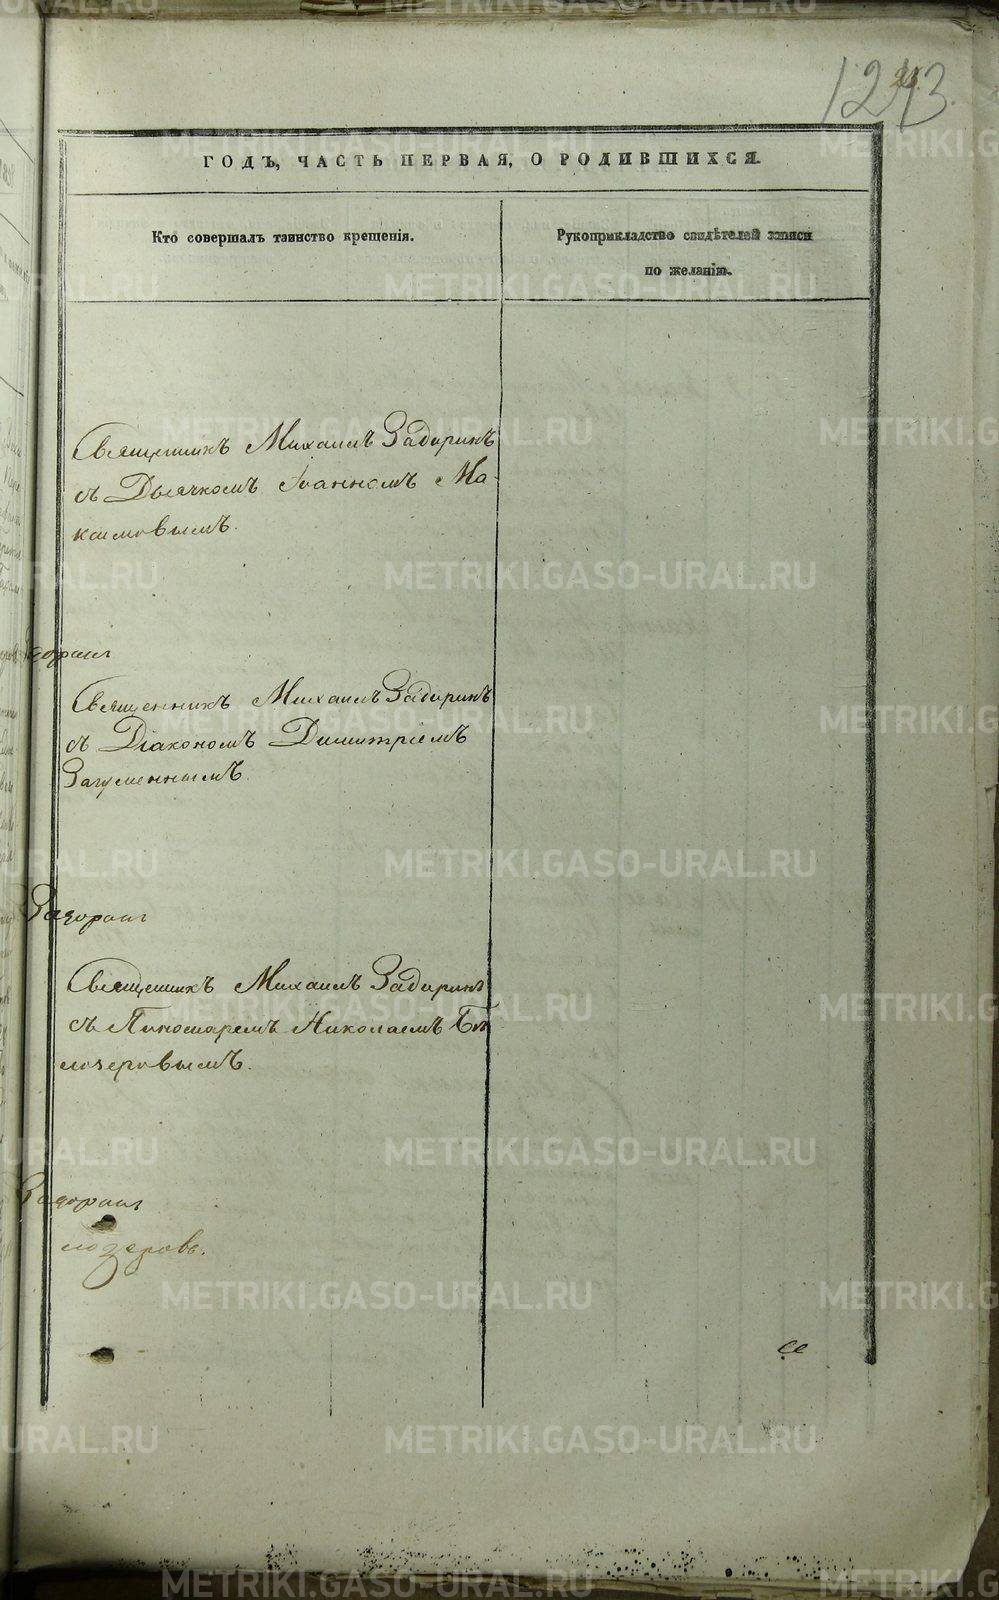 1243.
ГОДЪ, ЧАСТЬ ПЕРВАЯ, О РОДИВШИХСЯ.
Кто совершалъ таинство крещенія.
Рукоприкладство свидѣтелей записи
по желанію.
Священникъ Михаилъ Задоринъ
съ Дьячкомъ Іоанномъ Ма-
ксимовымъ.
Священникъ Михаилъ Задоринъ
съ Діакономъ Димитріемъ
Загуменнымъ.
Священникъ Михаилъ Задоринъ
съ Пономаремъ Николаемъ Бѣ
лозеровымъ.
лозеровъ.
METRIKI.GASO-URAL.RU